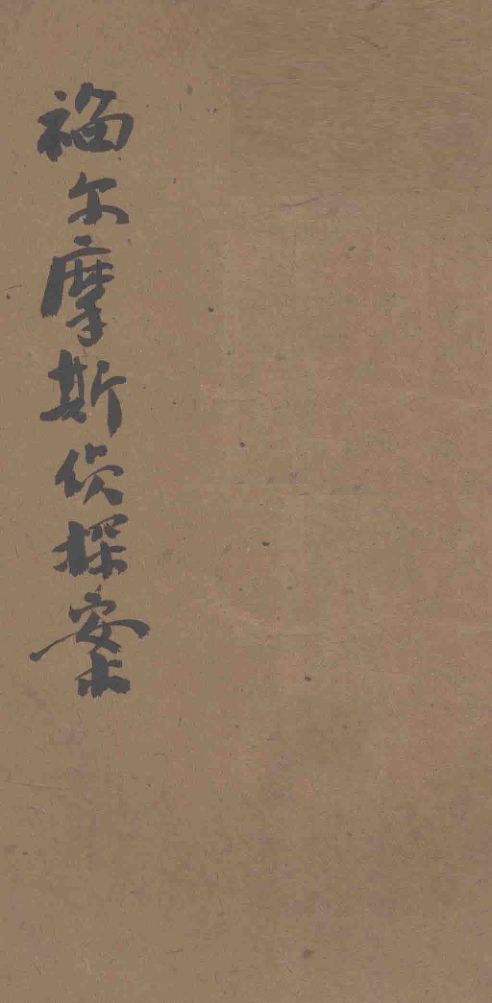 福尔摩斯侦探案